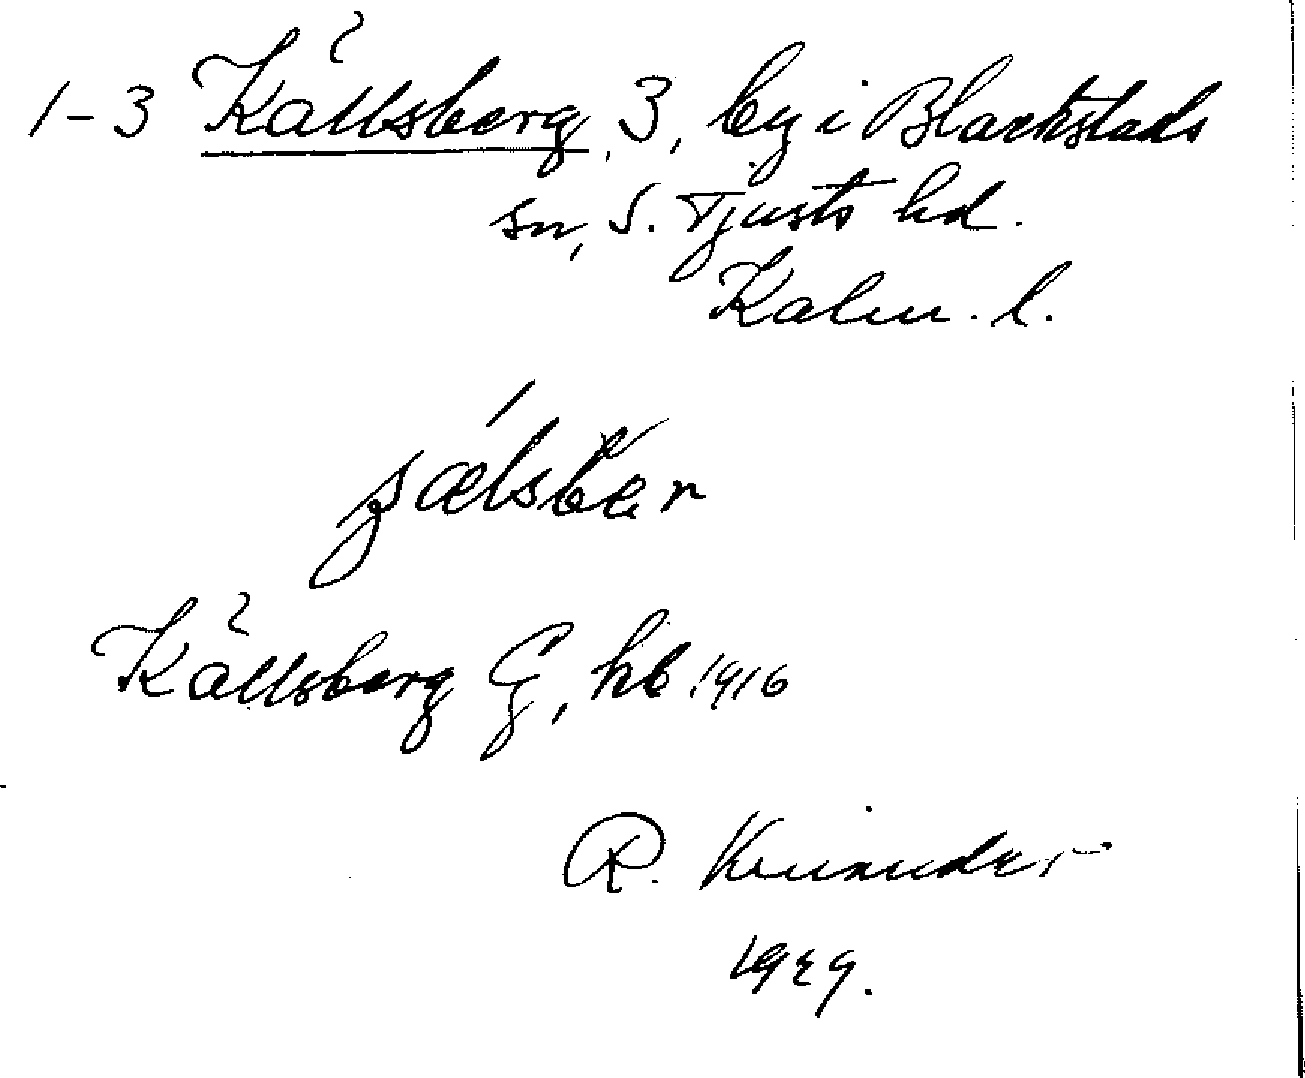 1-3 Källsberg, 3, by i Blackstads
sn, S. Tjusts hd.
Kalm. l.
Källsberg G, hb 1916
R. Kinander
1929.